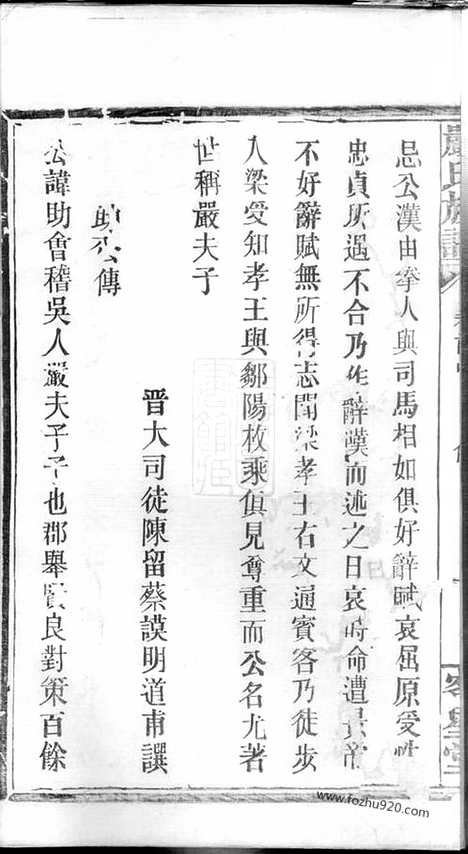 嚴氏族譜
忌公漢由拳人與司馬相如俱好辭賦哀屈原受性
忠貞所遇不合乃作辭嘆而述之曰哀時命遭景帝
不好辭賦無所得志聞梁孝王右文通賓客乃徒步
入梁受知孝王與鄒陽枚乘俱見尊重而公名尤著
世稱嚴夫子
晋大司徒陳留蔡謨明道甫譔
助公傳
公諱助會稽吳人嚴夫子子也郡舉賢良對策百餘
www.fozhu920.com